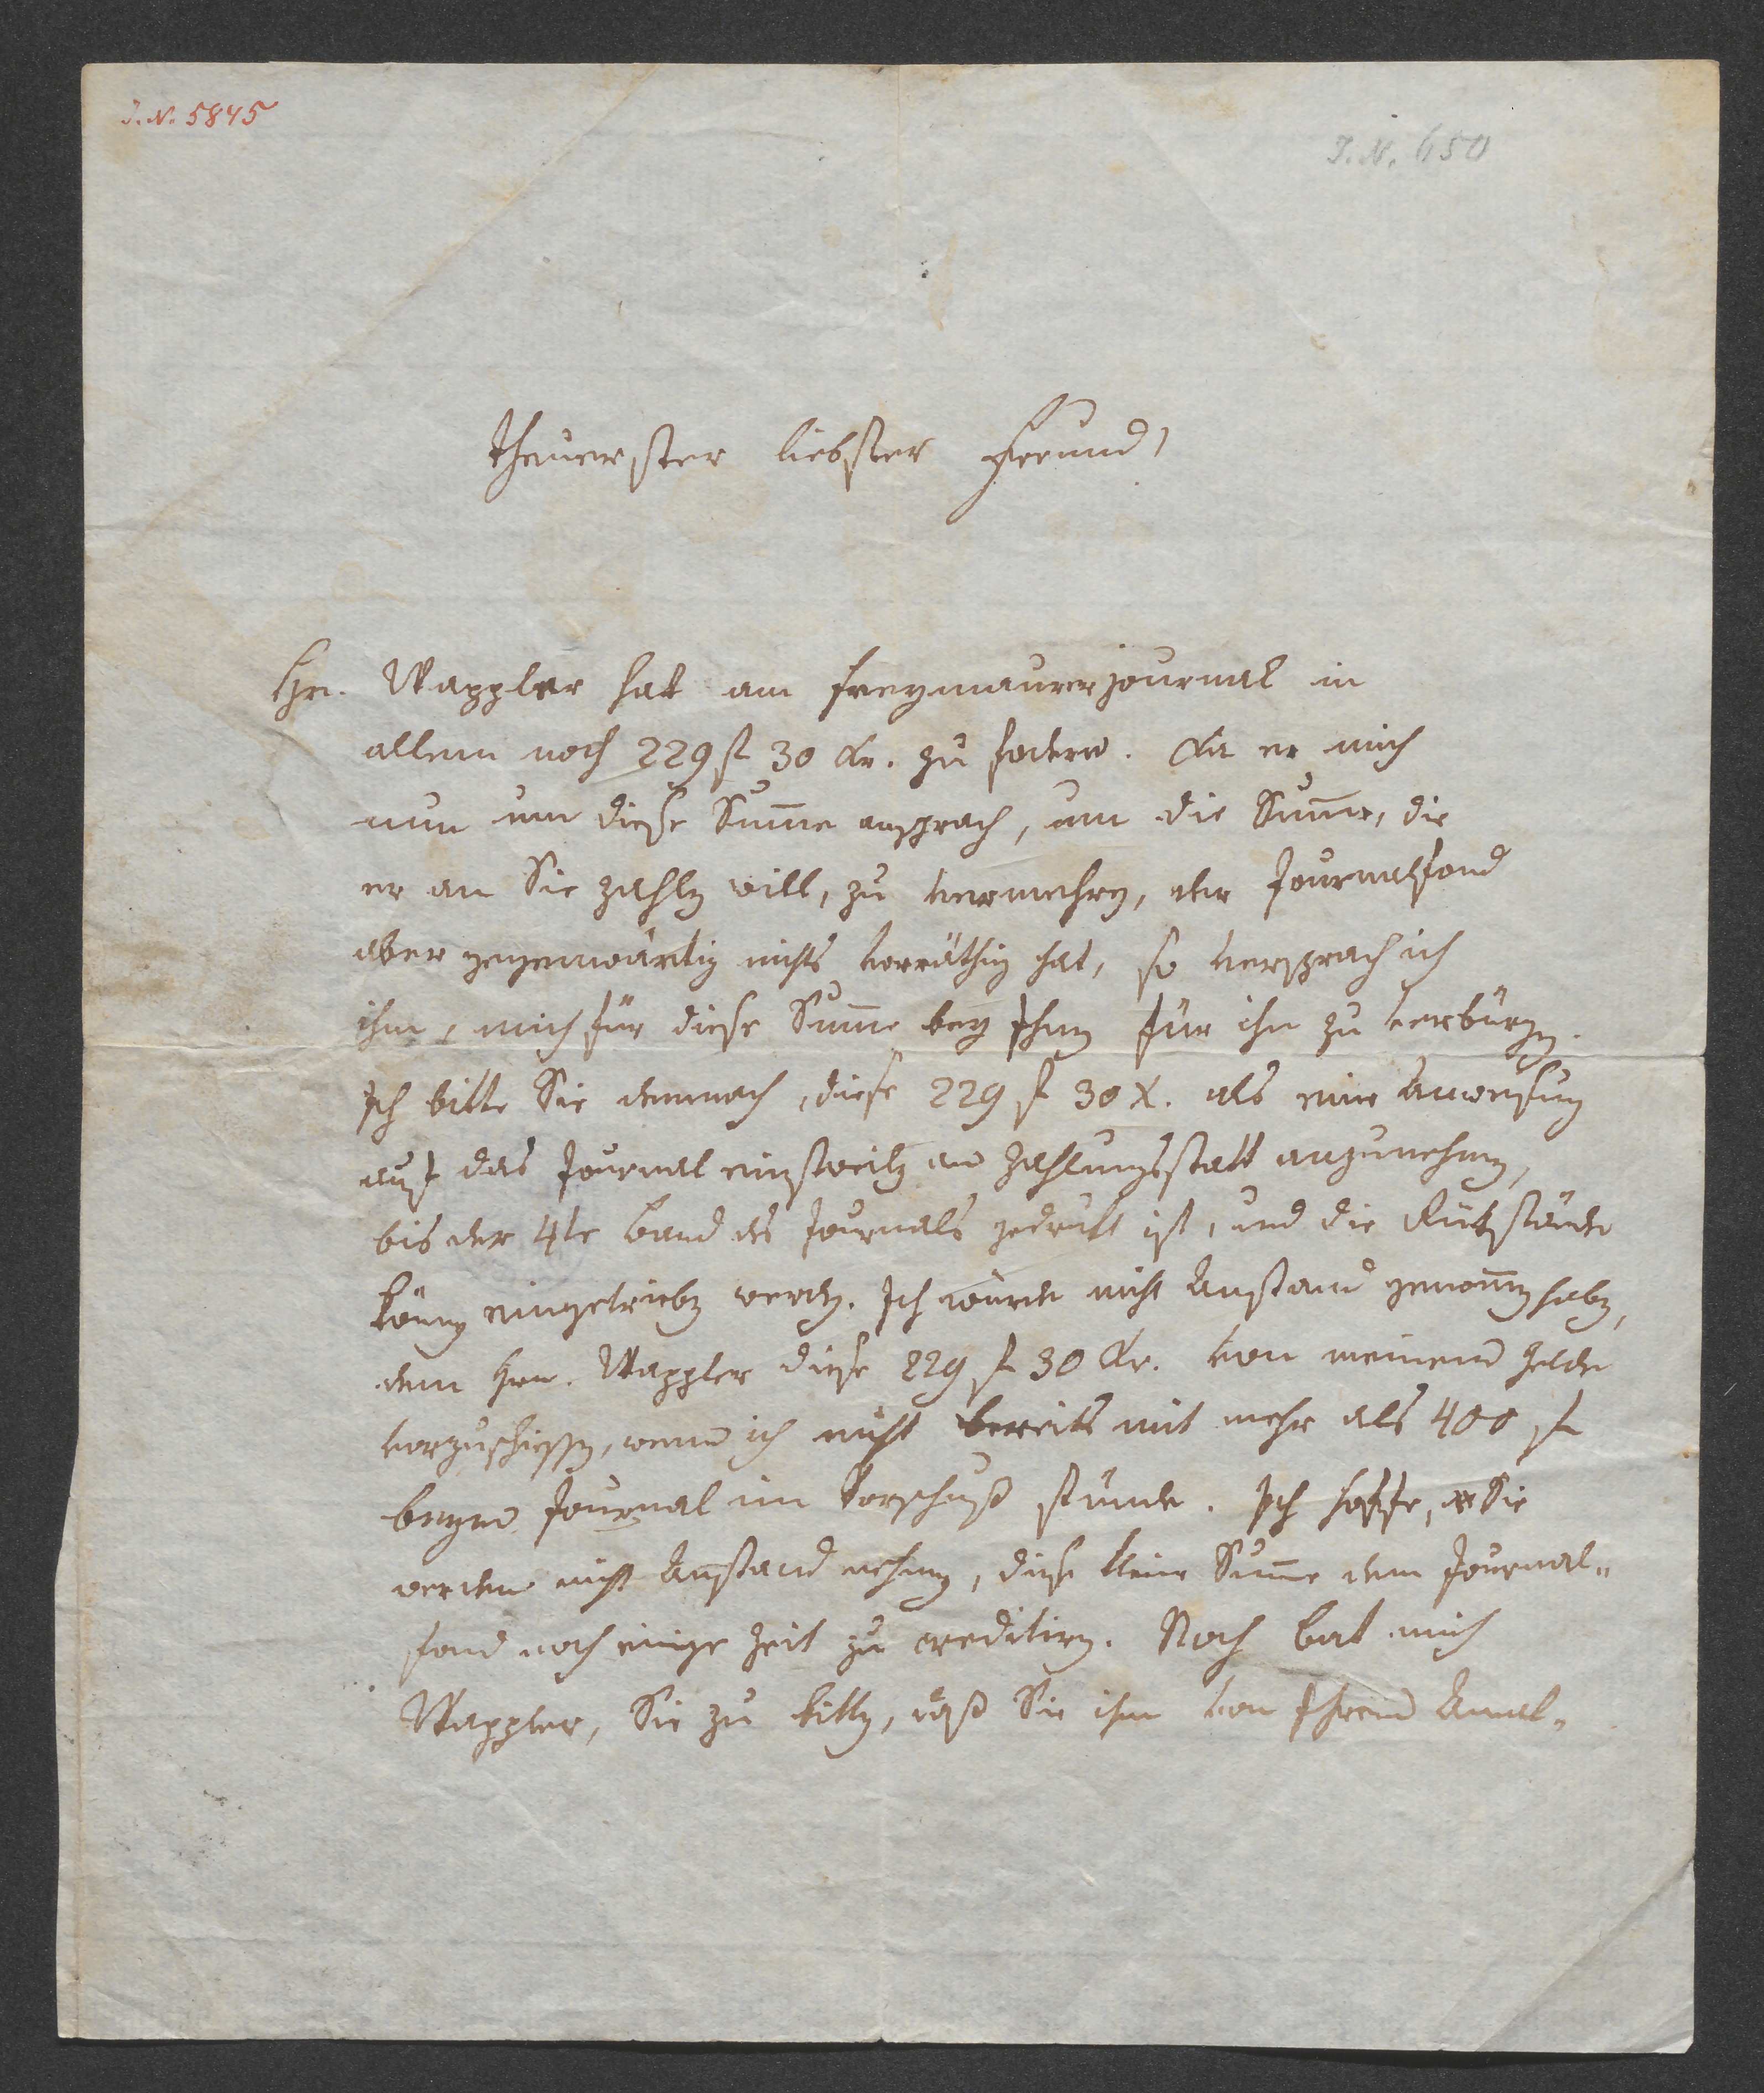 J.N. 5845
J.N. 650
Theuerster liebster Freund,
Hr. Wappler hat am Freymaurerjournal in
allem noch 229 f 30 kr. zu fodern. Da er mich
nun um diese Sum̄e ansprach, um die Sum̄e, die
er an Sie zahlen will, zu vermehren, der Journalfond
aber gegenwärtig nichts vorräthig hat, so versprach ich
ihm, mich für diese Sum̄e bey Ihnen für ihn zu verbürgen.
Ich bitte Sie demnach, diese 229 f 30 X. als eine Anweisung
auf das Journal einstweilen an Zahlungsstatt anzunehmen,
bis der 4te Band des Journals gedrukt ist, und die Rükstände
können eingetrieben werden. Ich würde nicht Anstand genom̄en haben,
dem Hrn. Wappler diese 229 f 30 kr. von meinem Gelde
vorzuschiessen, wenn ich nicht bereits mit mehr als 400 f
beym Journal im Vorschuß stünde. Ich hoffe, Sie
werden nicht Anstand nehmen, diese kleine Sum̄e dem Journal-
fond noch einige Zeit zu creditiren. Noch bat mich
Wappler, Sie zu bitten, daß Sie ihm von Ihrem Amal-